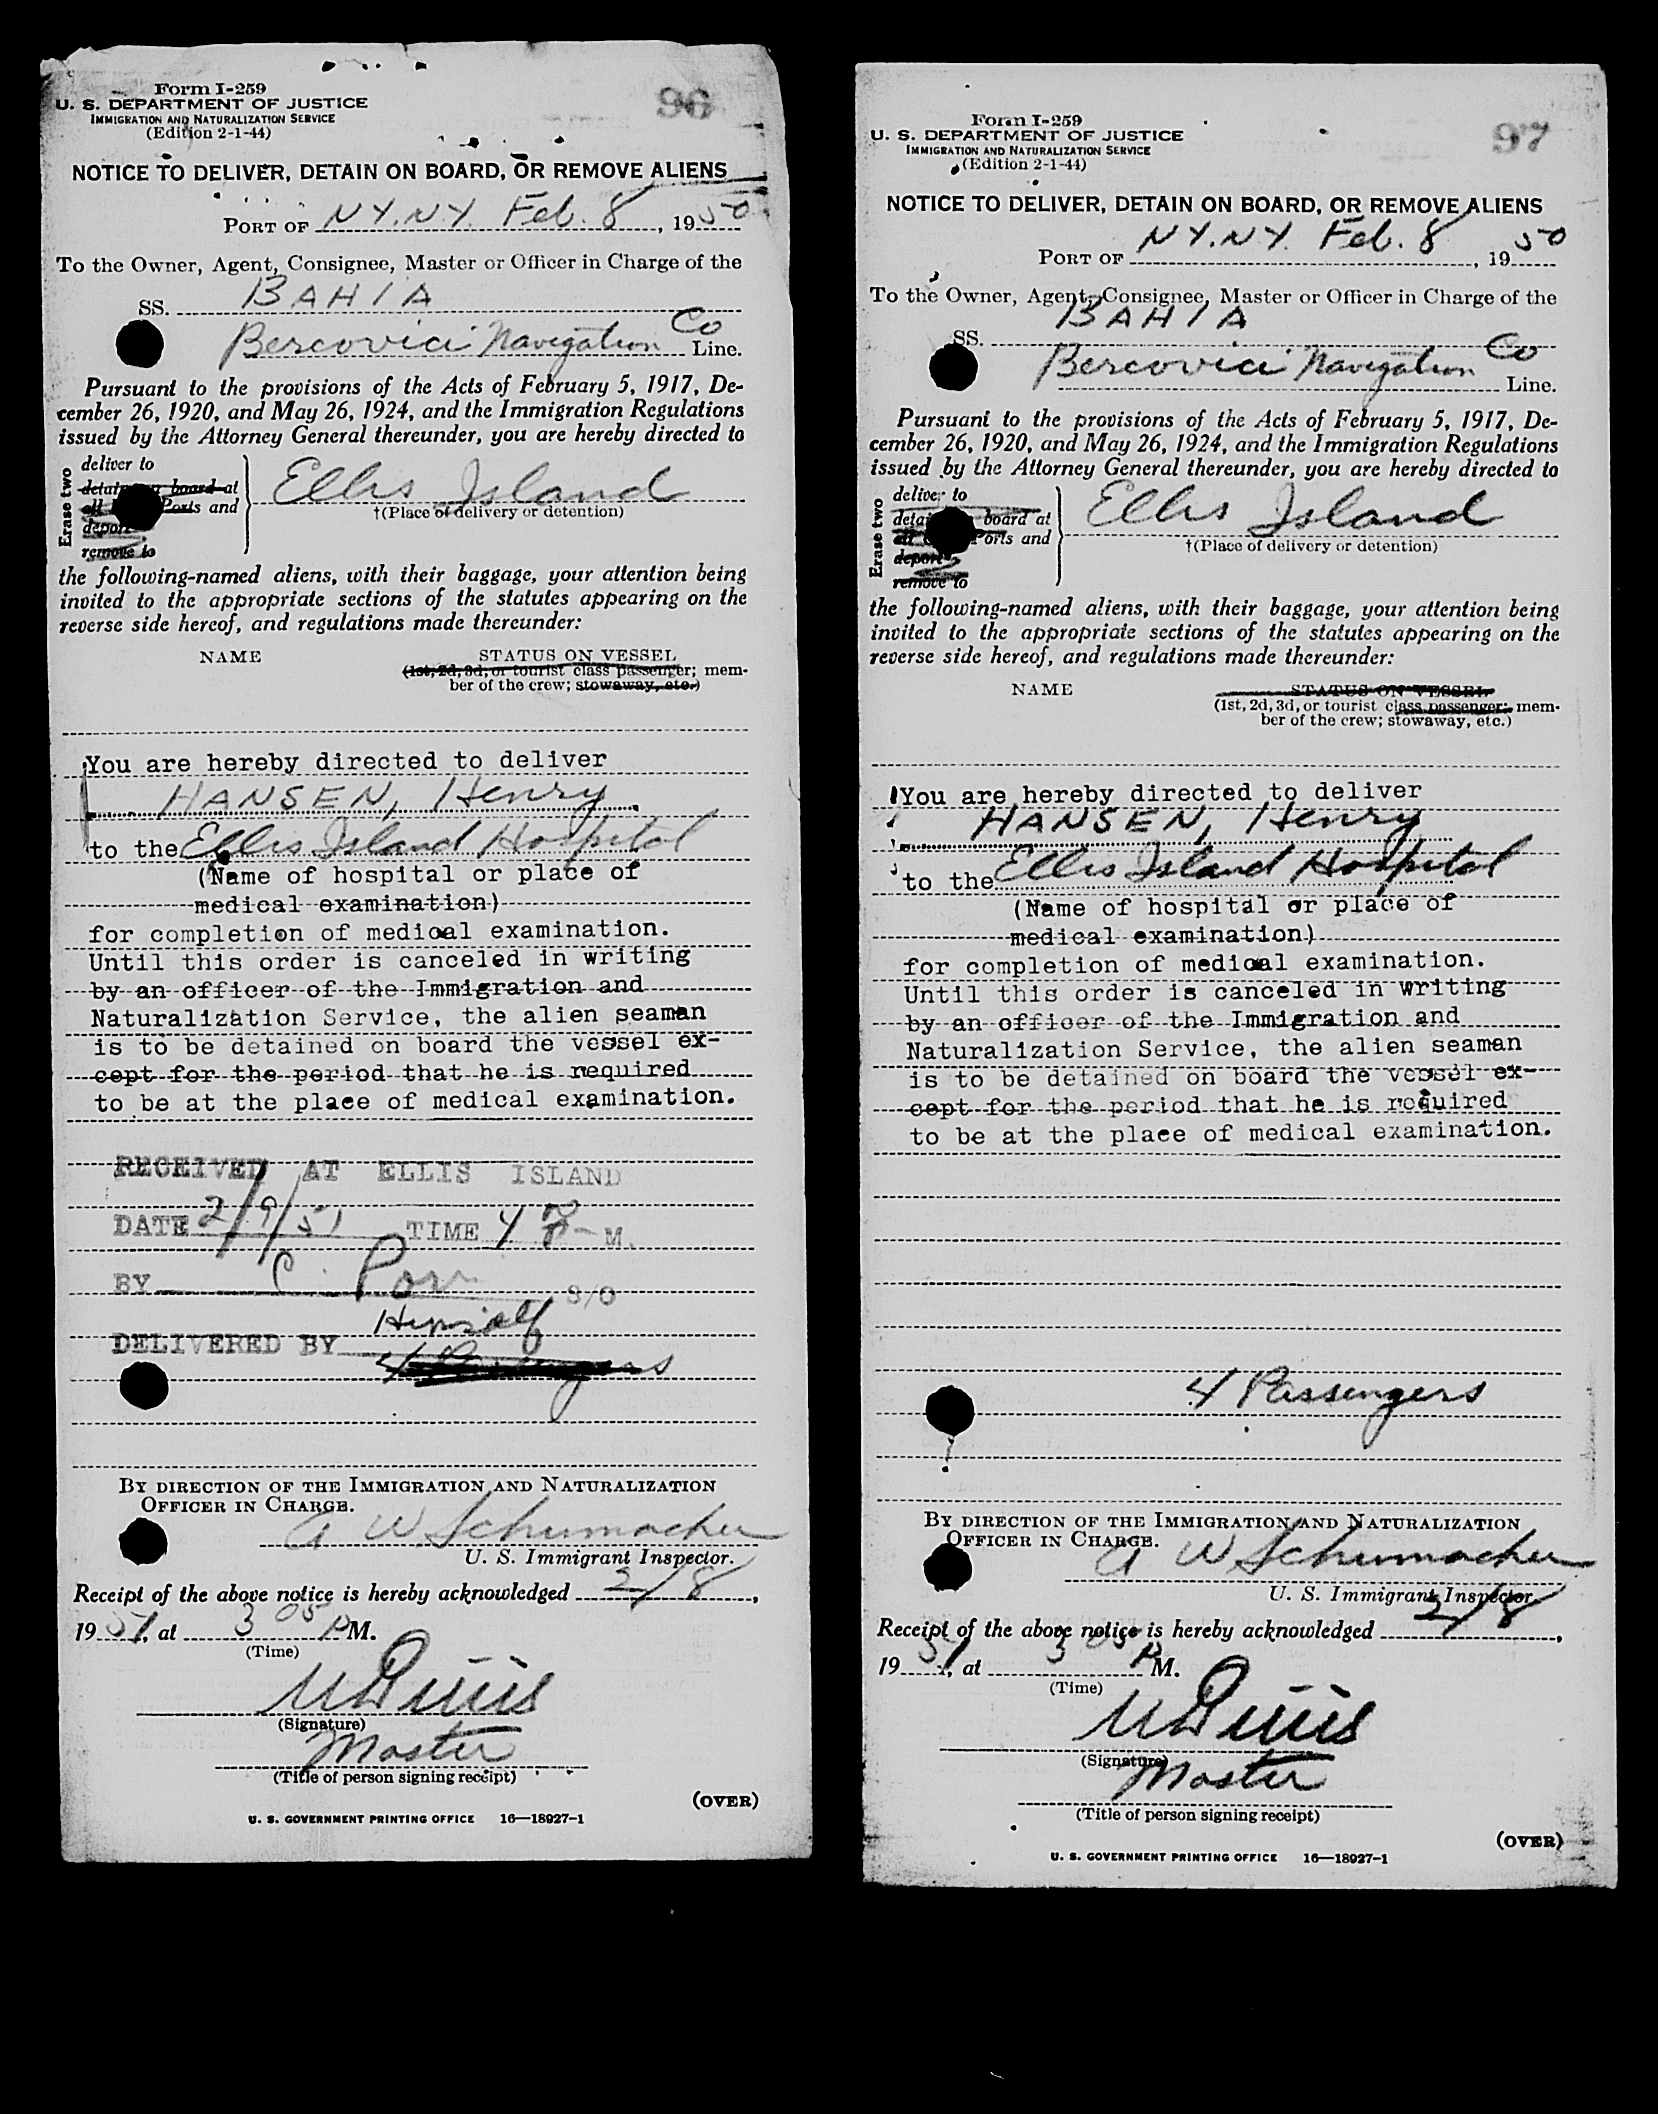 Form I-259
U. S. DEPARTMENT OF JUSTICE
IMMIGRATION AND NATURALIZATION SERVICE
(Edition 2-1-44)
96
NOTICE TO DELIVER, DETAIN ON BOARD, OR REMOVE ALIENS
PORT OF N.Y. N.Y. Feb. 8, 1950
To the Owner, Agent, Consignee, Master or Officer in Charge of the
SS. BAHIA
Bercovici Navigation Co Line.
Pursuant to the provisions of the Acts of February 5, 1917, De-
cember 26, 1920, and May 26, 1924, and the Immigration Regulations
issued by the Attorney General thereunder, you are hereby directed to
Erase two
deliver to
detain board at
all Ports and
deport
remove to
Ellis Island
†(Place of delivery or detention)
the following-named aliens, with their baggage, your attention being
invited to the appropriate sections of the statutes appearing on the
reverse side hereof, and regulations made thereunder:
NAME STATUS ON VESSEL
(1st, 2d, 3d, or tourist class passenger; mem-
ber of the crew; stowaway, etc.)
You are hereby directed to deliver
HANSEN, Henry
to the Ellis Island Hospital
(Name of hospital or place of
medical examination)
for completion of medical examination.
Until this order is canceled in writing
by an officer of the Immigration and
Naturalization Service, the alien seaman
is to be detained on board the vessel ex-
cept for the period that he is required
to be at the place of medical examination.
RECEIVED AT ELLIS ISLAND
DATE 2/9/51 TIME 4 M.
BY C. S/O
Himself
DELIVERED BY
4 Passengers
BY DIRECTION OF THE IMMIGRATION AND NATURALIZATION
OFFICER IN CHARGE.
A W Schumacher
U. S. Immigrant Inspector.
Receipt of the above notice is hereby acknowledged 2/8,
1951, at 3 05 P M.
(Time)
(Signature)
Master
(Title of person signing receipt)
(OVER)
U. S. GOVERNMENT PRINTING OFFICE 16—18927-1
Form I-259
U. S. DEPARTMENT OF JUSTICE
IMMIGRATION AND NATURALIZATION SERVICE
(Edition 2-1-44)
97
NOTICE TO DELIVER, DETAIN ON BOARD, OR REMOVE ALIENS
PORT OF N.Y. N.Y. Feb. 8, 1950
To the Owner, Agent, Consignee, Master or Officer in Charge of the
SS. BAHIA
Bercovici Navigation Co Line.
Pursuant to the provisions of the Acts of February 5, 1917, De-
cember 26, 1920, and May 26, 1924, and the Immigration Regulations
issued by the Attorney General thereunder, you are hereby directed to
Erase two
deliver to
detain board at
all Ports and
deport
remove to
Ellis Island
†(Place of delivery or detention)
the following-named aliens, with their baggage, your attention being
invited to the appropriate sections of the statutes appearing on the
reverse side hereof, and regulations made thereunder:
NAME STATUS ON VESSEL
(1st, 2d, 3d, or tourist class passenger; mem-
ber of the crew; stowaway, etc.)
You are hereby directed to deliver
HANSEN, Henry
to the Ellis Island Hospital
(Name of hospital or place of
medical examination)
for completion of medical examination.
Until this order is canceled in writing
by an officer of the Immigration and
Naturalization Service, the alien seaman
is to be detained on board the vessel ex-
cept for the period that he is required
to be at the place of medical examination.
4 Passengers
BY DIRECTION OF THE IMMIGRATION AND NATURALIZATION
OFFICER IN CHARGE.
A W Schumacher
U. S. Immigrant Inspector.
Receipt of the above notice is hereby acknowledged 2/8,
1951, at 3 05 P M.
(Time)
(Signature)
Master
(Title of person signing receipt)
(OVER)
U. S. GOVERNMENT PRINTING OFFICE 16—18927-1